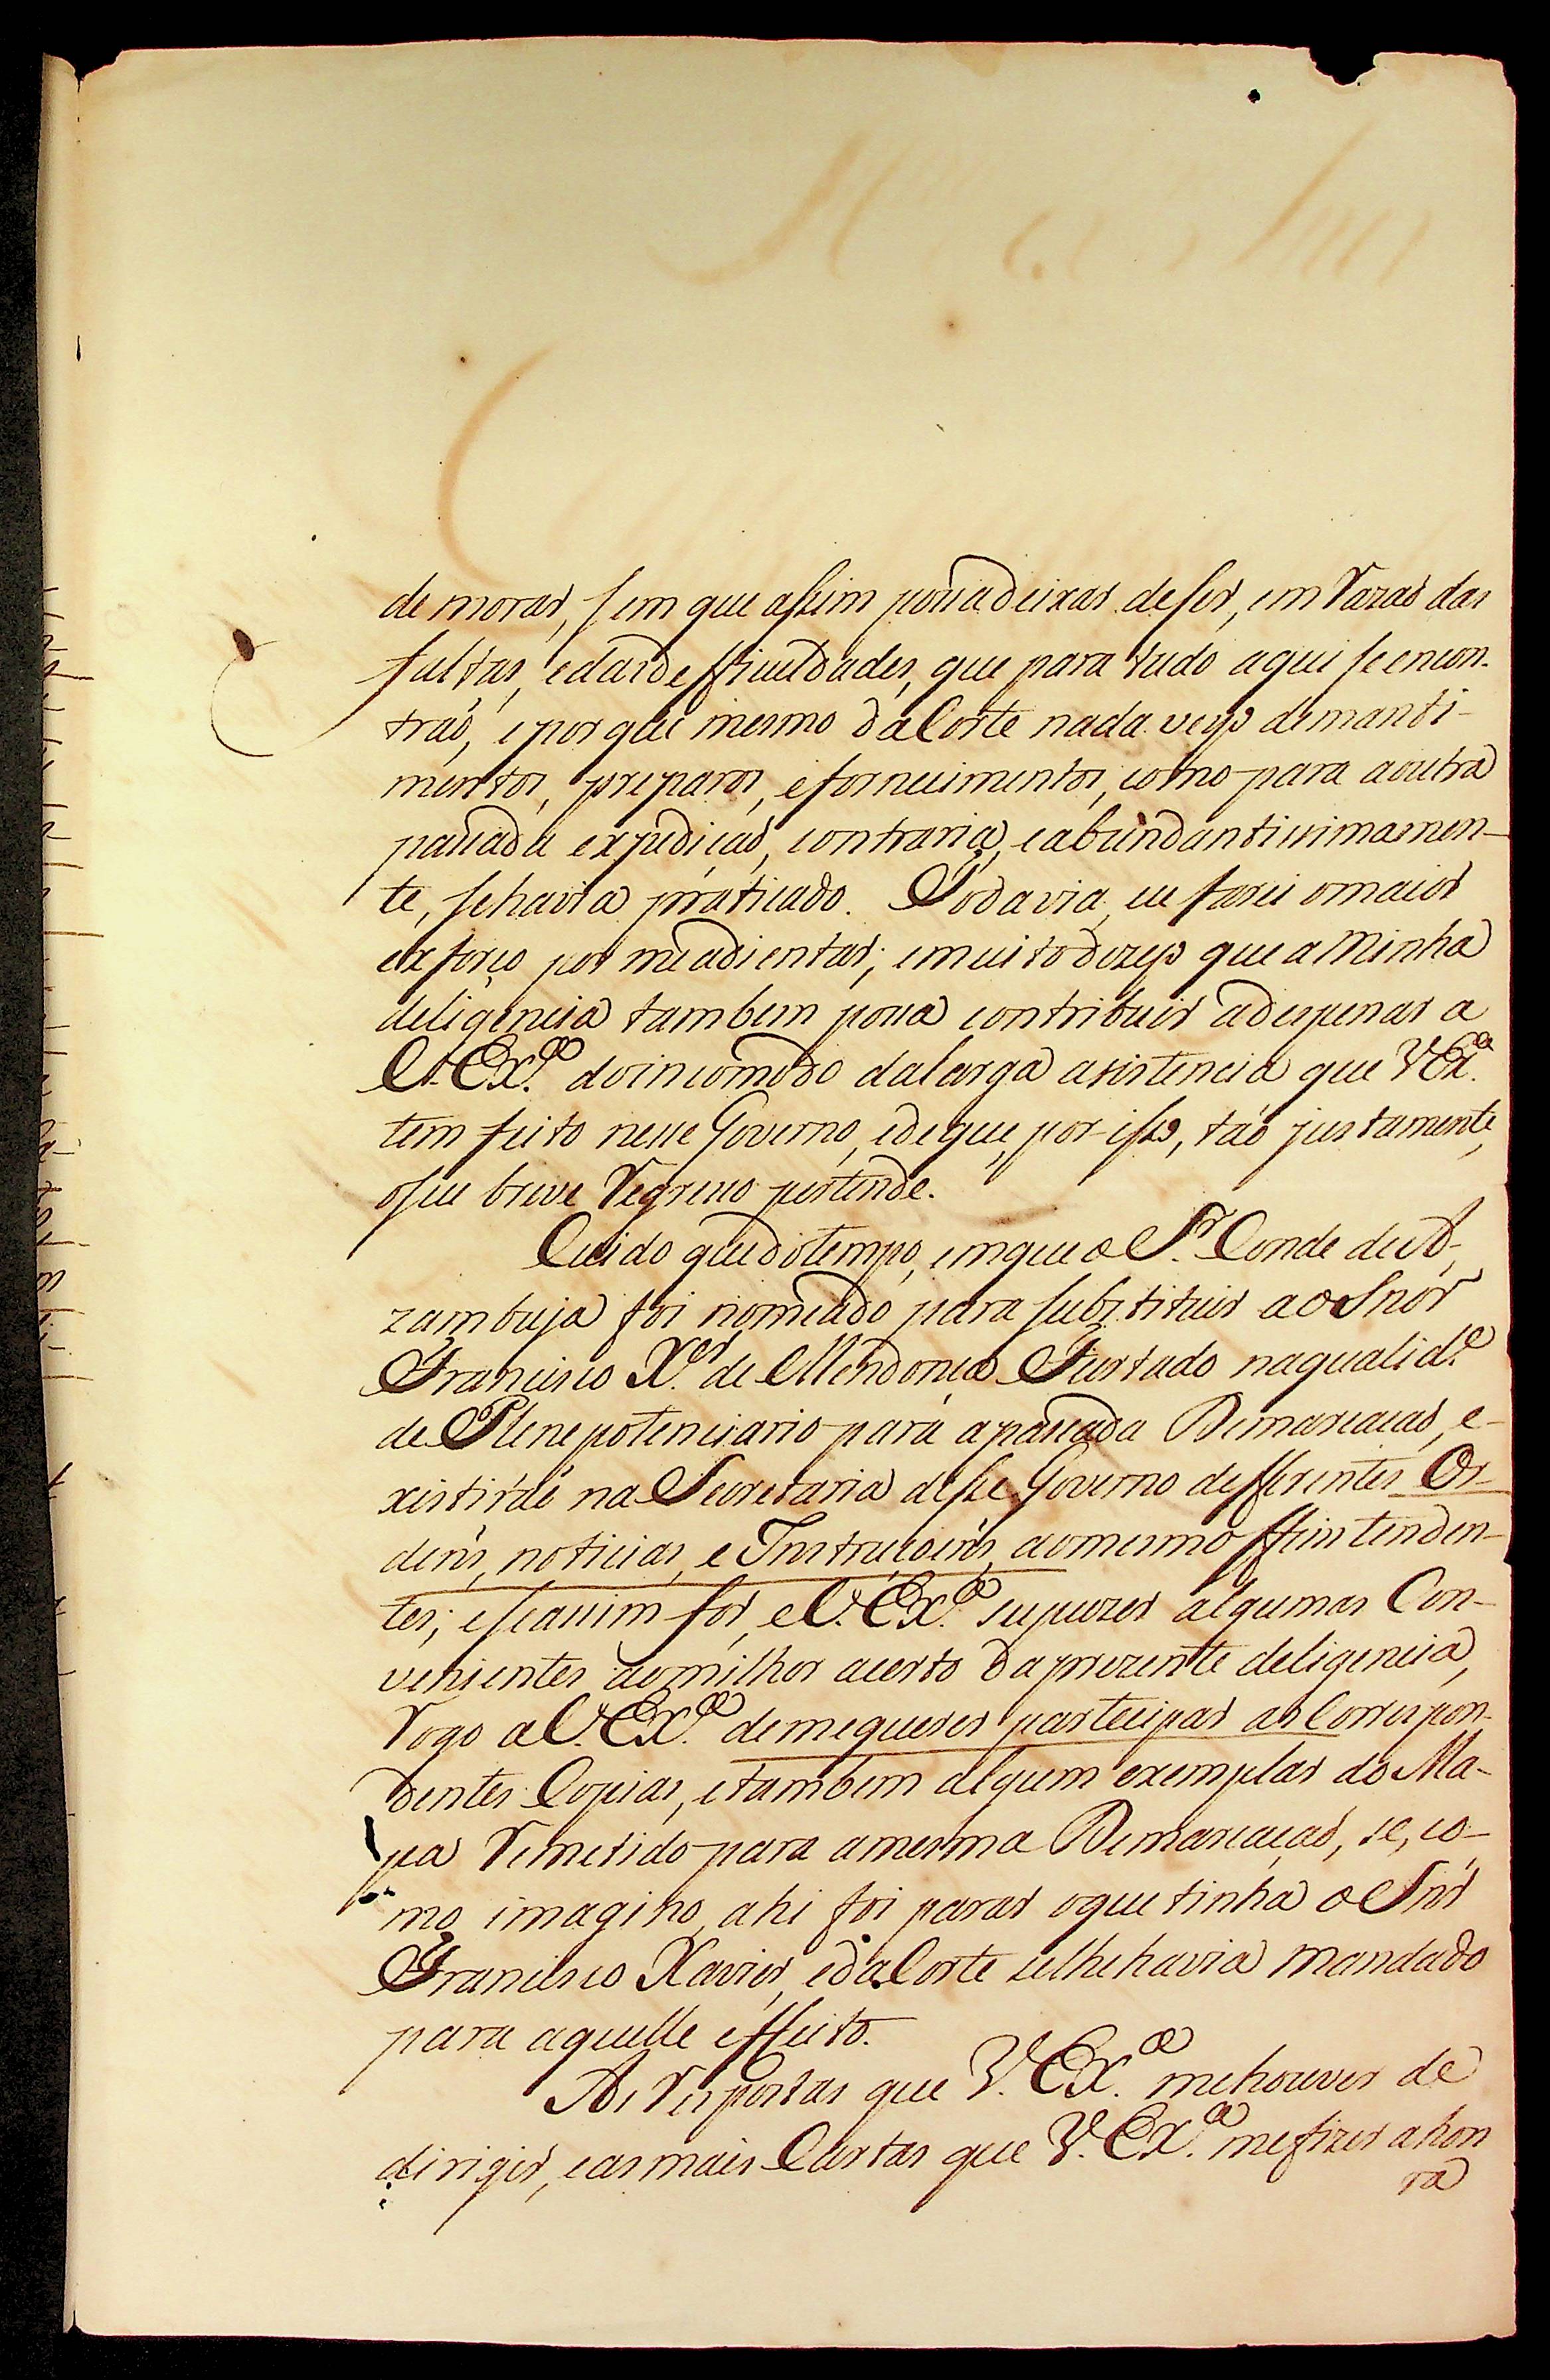 demorar, sem que assim possa deixar de ser, em razaõ das
faltas, e das defficuldades, que para tudo aqui se encon-
traõ, e por que mesmo da Corte nada vejo de manti-
mentos, preparos, e fornecimentos, como para a outra
passada expediçaõ, contraria, e abundantissimamen-
te, se havia praticado. Todavia, eu farei o maior
exforço por me adientar; e muito dezejo que a minha
deligencia tambem possa contribuir a despenar a
V. Ex.ª do incomodo da larga asistencia que V Ex.ª
tem feito nesse Governo, e de que, por isso, taõ justamente,
o seu breve regreso pertende.
Cuido que do tempo, em que o S.r Conde de A-
zambuja foi nomeado para substituir ao Snõr
Francisco X.er de Mendonça Furtado na qualid.e
de Plenepotenciario para a passada Demarcaçaõ, e-
xistiráõ na Secretaria desse Governo defferentes Or-
dens, noticias, e Instruçoens, ao mesmo ffim tenden-
tes; e se assim for, e V. Ex.ª supuzer algumas Con-
venientes ao milhor acerto da prezente deligencia,
rogo a V. Ex.ª de me querer partecipar as Correspon-
dentes Copias, e tambem algum exemplar do Ma-
pa remetido para a mesma Demarcaçaõ, se, co-
mo imagino, ahi foi parar o que tinha o Snr
Francisco Xavier, e da Corte se lhe havia mandado
para aquelle effeito.
As respostas que V. Ex.ª me houver de
dirigir, e as mais Cartas que V. Ex.ª me fizer a hon
ra